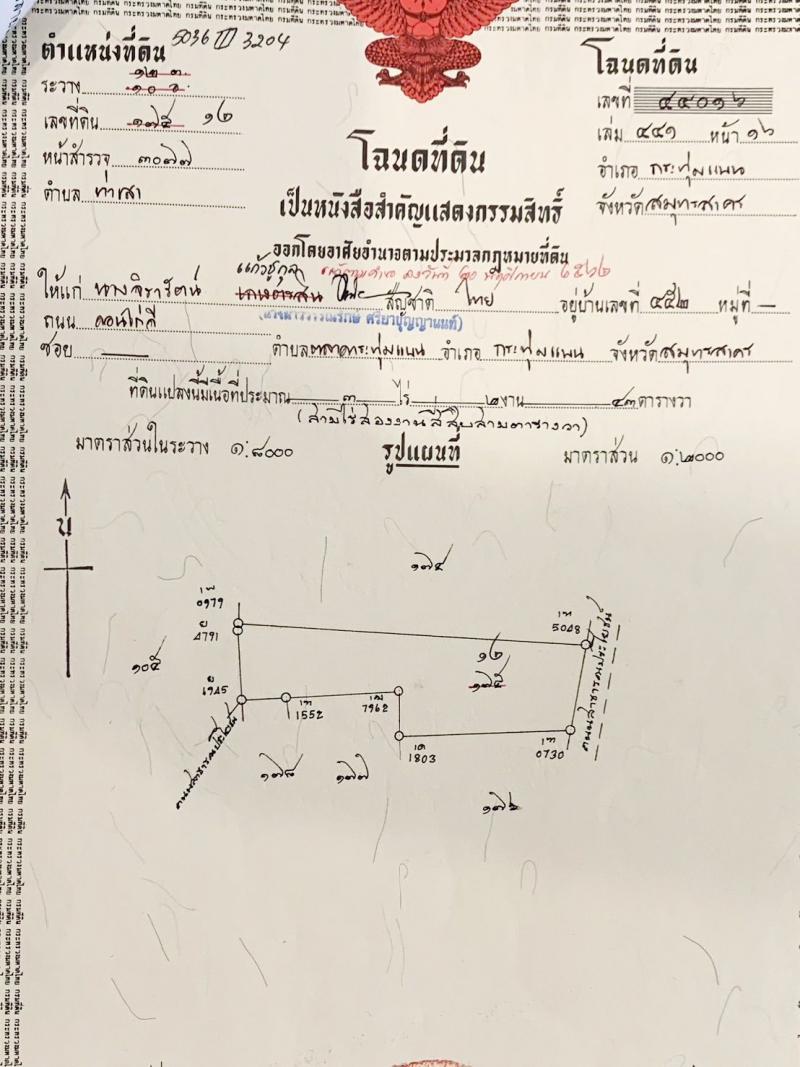 ตำแหน่งที่ดิน 5036 III 3204
ระวาง
เลขที่ดิน ๑๗๕ ๑๒
หน้าสำรวจ ๓๐๗๗
ตำบล ท่าเสา
โฉนดที่ดิน
เลขที่ ๔๔๐๑๖
เล่ม ๔๔๑ หน้า ๑๖
อำเภอ กระทุ่มแบน
จังหวัด สมุทรสาคร
โฉนดที่ดิน
เป็นหนังสือสำคัญแสดงกรรมสิทธิ์
ออกโดยอาศัยอำนาจตามประมวลกฎหมายที่ดิน
ให้แก่ นางจิรารัตน์ สัญชาติ ไทย อยู่บ้านเลขที่ ๔๕๒ หมู่ที่ —
ถนน ดอนไก่ดี
ซอย — ตำบล ตลาดกระทุ่มแบน อำเภอ กระทุ่มแบน จังหวัด สมุทรสาคร
ที่ดินแปลงนี้มีเนื้อที่ประมาณ ๓ ไร่ ๒ งาน ๔๓ ตารางวา
(สามไร่สองงานสี่สิบสามตารางวา)
มาตราส่วนในระวาง ๑:๘๐๐๐ รูปแผนที่ มาตราส่วน ๑:๒๐๐๐
น
๑๗๔
0979
4791
5048
๑๒
๑๗๕
๑๐๕
1945
1552
7962
1803
0730
ถนนสาธารณประโยชน์
๑๗๘ ๑๗๗
๑๗๖